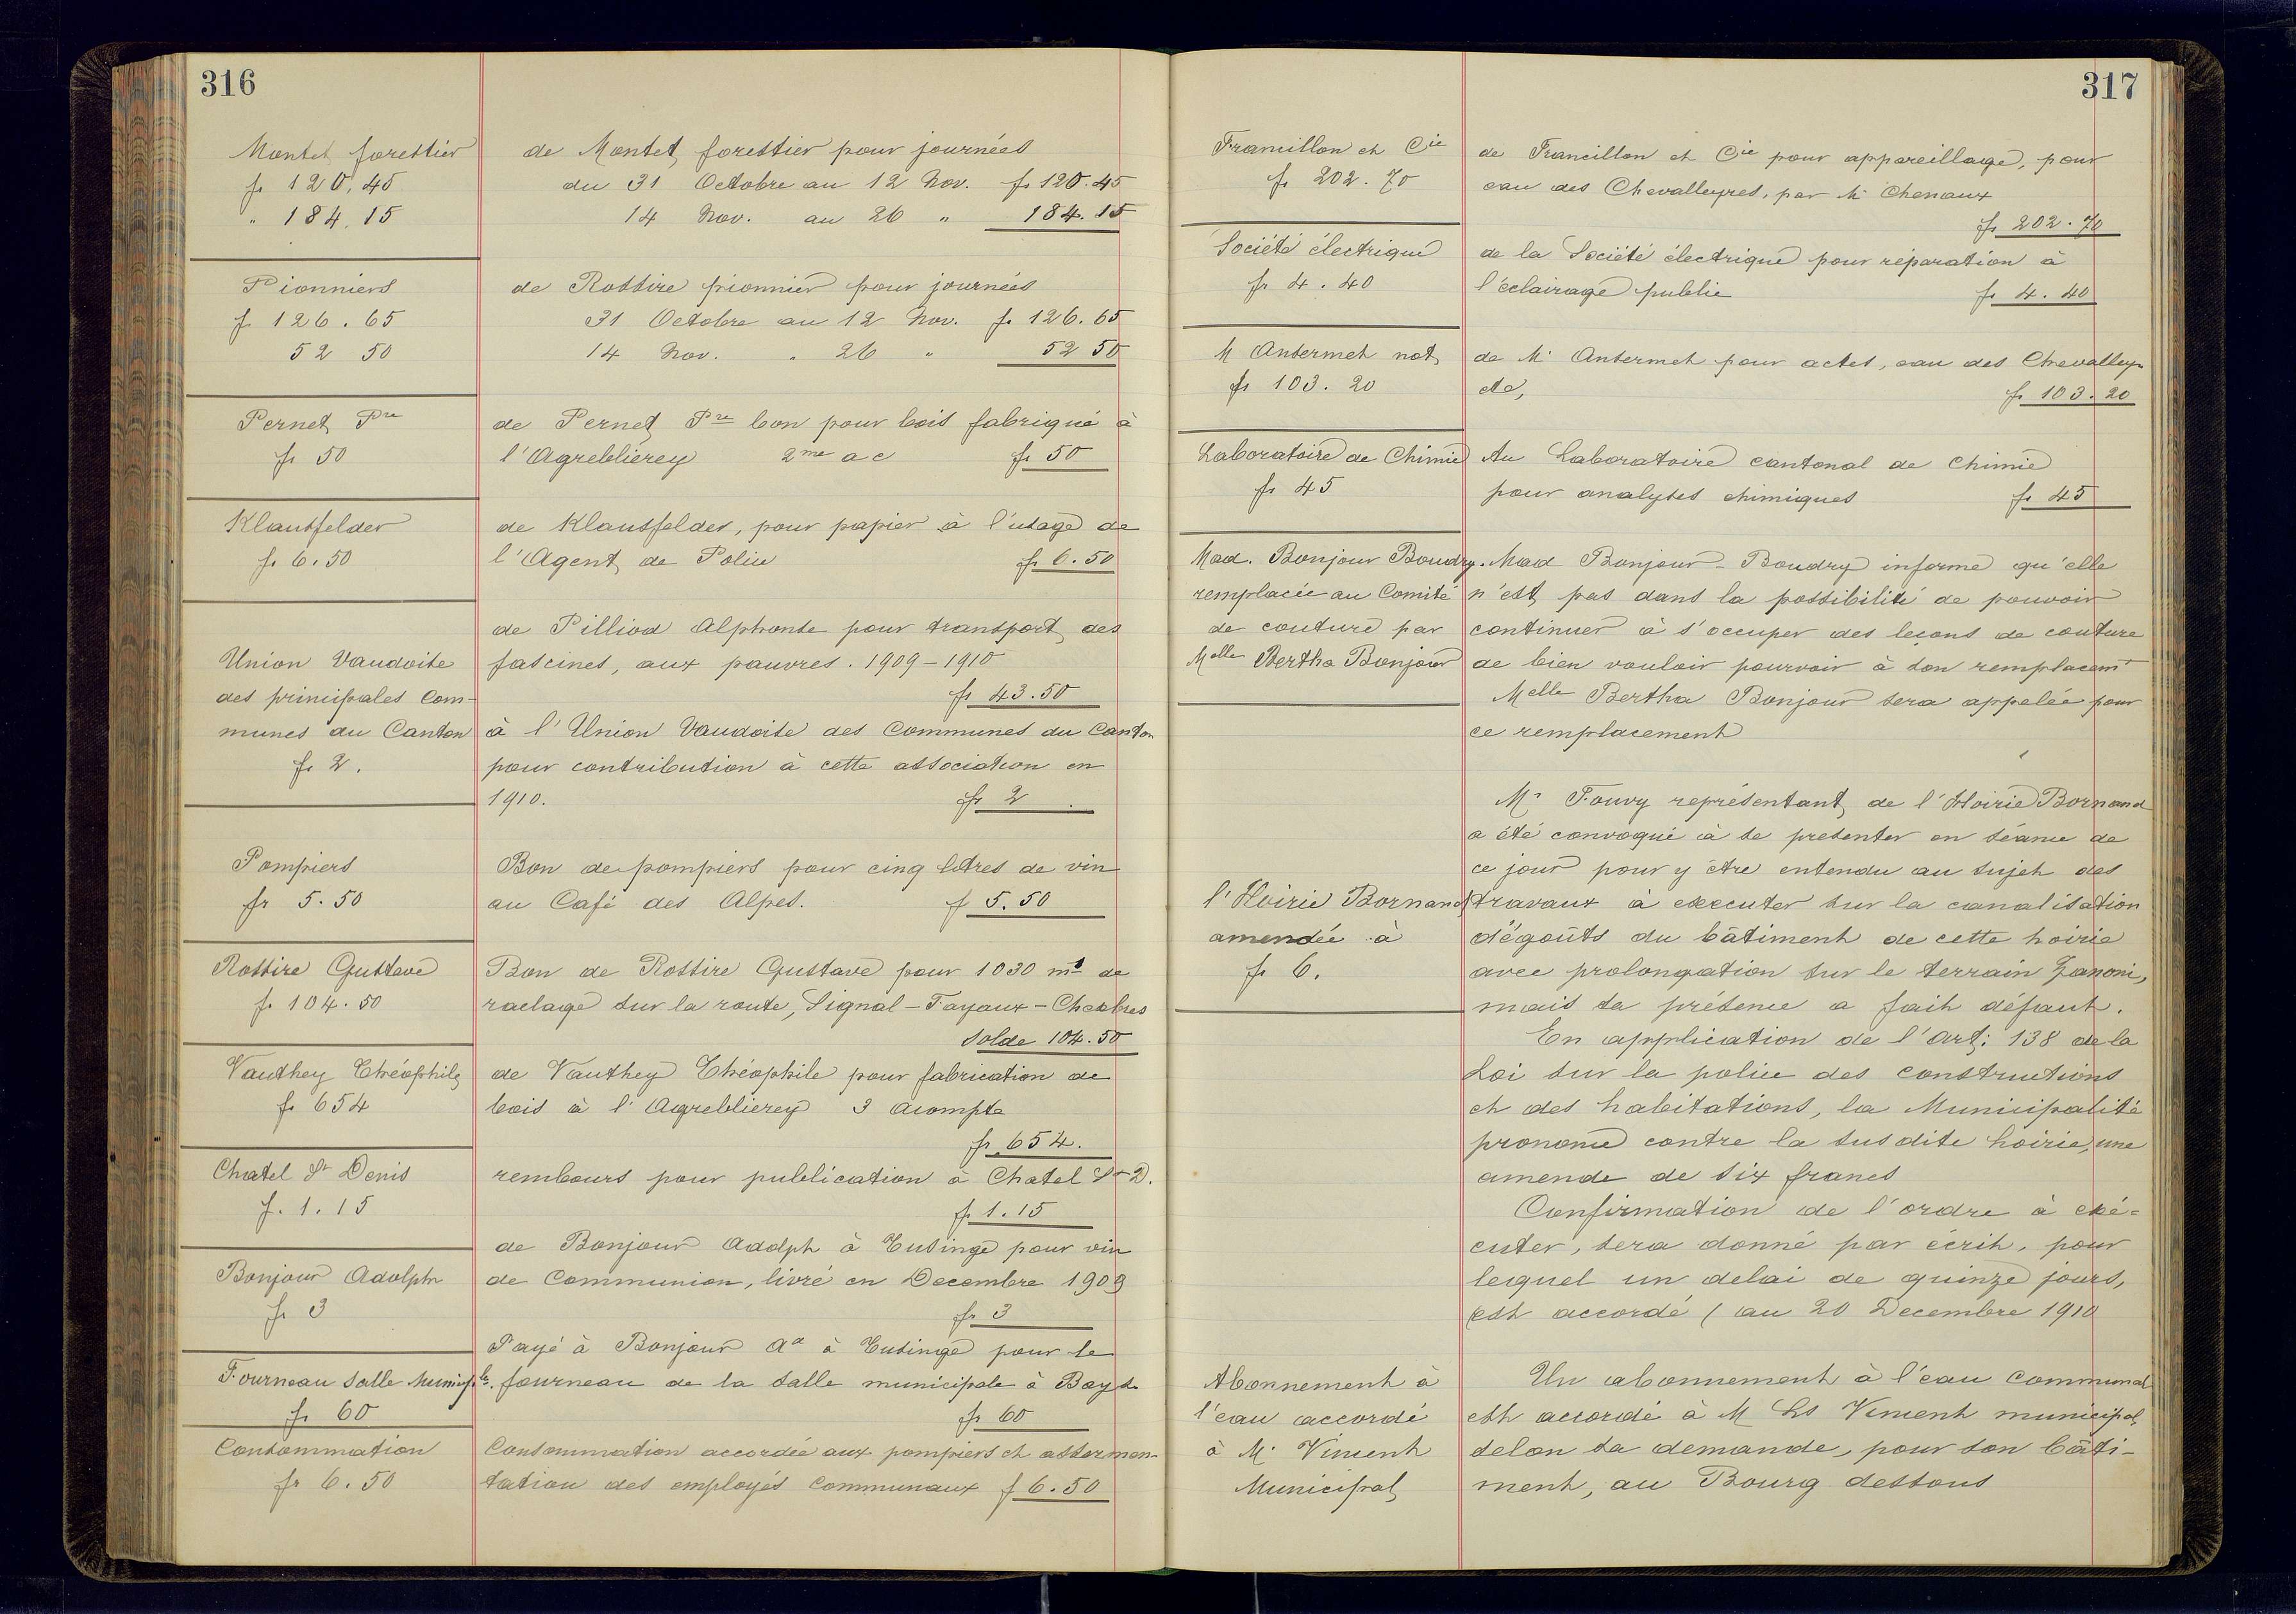 316
Montet forestier
fr 120.45
" 184.15
de Montet forestier pour journées
du 31 Octobre au 12 Nov. fr 120.45
14 Nov. au 26 " 184.15
Pionniers
fr 126.65
52 50
de Rossire pionnier pour journées
31 Octobre au 12 Nov. fr 126.65
14 Nov. " 26 " 52 50
Pernet Pre
fr 50
de Pernet Pre bon pour bois fabriqué à
l'Agreblierey 2me a c fr 50
Klausfelder
fr 6.50
de Klausfelder, pour papier à l'usage de
l'Agent de Police fr 6.50
de Pilliod Alphonse pour transport des
fascines, aux pauvres. 1909-1910
fr 43.50
Union Vaudoise
des principales Com-
munes du Canton
fr 2.
à l'Union Vaudoise des Communes du Canton
pour contribution à cette association en
1910. fr 2.
Pompiers
fr 5.50
Bon de pompiers pour cinq litres de vin
au Café des Alpes. f 5.50
Rossire Gustave
fr 104.50
Bon de Rossire Gustave pour 1030 ms de
raclage sur la route, Signal-Fayaux-Chexbres
Solde 104.50
Vauthey Théophile
fr 654
de Vauthey Théophile pour fabrication de
bois à l'Agreblierey 3 acompte
fr 654.
Chatel St Denis
f. 1.15
rembours pour publication à Chatel St D.
fr 1.15
Bonjour Adolph
fr 3
de Bonjour Adolph à Eusinge pour vin
de Communion, livré en Decembre 1909
fr 3
Fourneau salle Municiple.
fr 60
Payé à Bonjour Ad à Eusinge pour le
fourneau de la salle municipale à Bays
fr 60
Consommation
fr 6.50
Consommation accordée aux pompiers et assermen-
tation des employés Communaux f 6.50
317
Francillon et Cie
fr 202.70
de Francillon et Cie pour appareillage, pour
eau des Chevalleyres, par Mr Chenaux
fr 202.70
Société électrique
fr 4.40
de la Société électrique pour réparation à
l'éclairage public fr 4.40
M Ansermet not
fr 103.20
de Mr Ansermet pour actes, eau des Chevalleyr
etc, fr 103.20
Laboratoire de Chimie
fr 45
Au Laboratoire cantonal de chimie
pour analyses chimiques fr 45
Mad. Bonjour Boudry
remplacée au Comité
de couture par
Melle Bertha Bonjour
Mad Bonjour-Boudry informe qu'elle
n'est pas dans la possibilité de pouvoir
continuer à s'occuper des leçons de couture
de bien vouloir pourvoir à son remplacemt
Melle Bertha Bonjour sera appelée pour
ce remplacement
Mr Fouvy représentant de l'Hoirie Bornand
a été convoqué à se presenter en séance de
ce jour pour y être entendu au sujet des
l'Hoirie Bornand
amendée à
fr 6.
travaux à executer sur la canalisation
d'égoûts du bâtiment de cette hoirie
avec prolongation sur le terrain Zanoni,
mais sa présence a fait défaut.
En application de l'art: 138 de la
Loi sur la police des constructions
et des habitations, la Municipalité
prononce contre la susdite hoirie, une
amende de six francs
Confirmation de l'ordre à exé=
cuter, sera donné par écrit, pour
lequel un delai de quinze jours,
est accordé ( au 20 Decembre 1910
Abonnement à
l'eau accordé
à Mr Vincent
Municipal
Un abonnement à l'eau communal
est accordé à M Ls Vincent municipal
selon sa demande, pour son bâti-
ment, au Bourg dessous